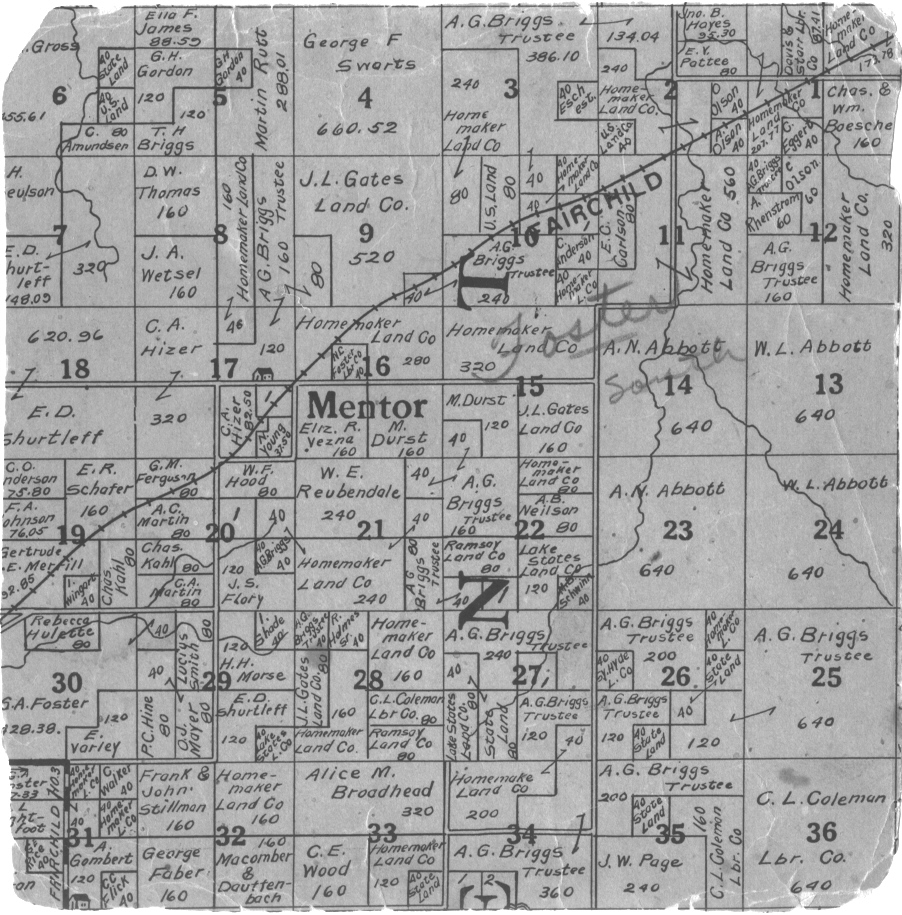 Ella F.
James
88.59
A.G. Briggs
Trustee
386.10
134.04
Jno. B.
Hayes
95.30
Davis &
Starr Lbr.
Co
87.41
Home-
maker
Land Co
173.78
Gross
40
State
Land
G.H.
Gordon
G.H.
Gordon
40
Martin Rutt
288.01
George F
Swarts
E.V.
Pattee
80
6
55.61
40
U.S.
Land
120
5
120
4
660.52
240
3
Home
maker
Land Co
40
Esch
est.
240
Home-
maker
Land Co
2
O
Olson
40
Homemaker
Land Co
207.47
1
Chas. &
Wm.
Boesche
160
C. 80
Amundsen
T.H
Briggs
U.S.
Land Co
40
A.
Olson
40
C.
Eggert
40
H.
eulson
D.W.
Thomas
160
160
Homemaker Land Co
A.G. Briggs
Trustee
160
J.L. Gates
Land Co.
9
520
80
U.S. Land
80
40
40
Home
maker
Land Co
40
FAIRCHILD
Homemaker
Land Co 560
A.G. Briggs
Trustee
40
C.
Olson
60
A.
Rhenstrom
60
12
Homemaker
Land Co.
320
7
E.D.
hurt-
leff
148.09
320
J.A.
Wetsel
160
8
80
10
A.G.
Briggs
Trustee
240
C.
Anderson
40
40
Home
maker
L. Co
E.C.
Carlson
80
11
A.G.
Briggs
Trustee
160
40
620.96
18
C.A.
Hizer
17
46
120
Homemaker
Land Co
280
16
N.C.
Foster
Lbr Co
40
Homemaker
Land Co
320
15
Foster
South
A.N. Abbott
14
640
W.L. Abbott
13
640
E.D.
Shurtleff
320
C.A.
Hizer
82.50
N.
Young
37.50
Mentor
Eliz. R.
Vezna
160
M.
Durst
160
M. Durst
120
40
J.L. Gates
Land Co
160
C.O.
nderson
75.80
E.R.
Schafer
160
G.M.
Ferguson
80
W.F.
Hood
80
W.E.
Reubendale
240
40
A.G.
Briggs
Trustee
160
Home-
maker
Land Co
80
A.N. Abbott
W.L. Abbott
F.A.
ohnson
76.05
19
A.C.
Martin
80
20
40
21
40
22
A.B.
Neilson
80
23
640
24
640
Gertrude
E. Merrill
92.85
I.
Wingort
40
Chas.
Kahl
80
Chas.
Kahl
80
C.A.
Martin
80
120
J.S.
Flory
A.G. Briggs
40
Homemaker
Land Co
240
A G
Briggs
Trustee
80
Ramsay
Land Co
80
40
N
Lake
States
Land Co
120
M.B.
Schwinn
40
Rebecca
Hulette
80
40
Lucius
Smith
80
120
I.
Shade
40
A.G.
Briggs
Trustee
40
R.
Holmes
Sr
40
Home-
maker
Land Co
160
A.G. Briggs
Trustee
240
A.G. Briggs
Trustee
200
40
Home
maker
L. Co
A.G. Briggs
Trustee
25
640
30
S.A. Foster
128.38
120
E.
Varley
40
P.C. Hine
80
O.J.
Mayer
80
29
H.H.
Morse
E.D.
Shurtleff
120
40
Lake
States
L. Co
J.L. Gates
Land Co.
80
28
160
Homemaker
Land Co.
C.L. Coleman
Lbr Co.
80
Ramsay
Land Co
80
40
27
Lake States
Land Co.
80
State
Land
80
A.G. Briggs
Trustee
120
40
40
Hyde
L. Co
26
40
State
Land
A.G. Briggs
Trustee
40
120
40
State
Land
FAIRCHILD NO. 3
40
C.
Walker
40
Home
maker
L. Co
31
A.
Gombert
120
C.C.
Flick
40
Frank &
John
Stillman
160
George
Faber
160
Home-
maker
Land Co
160
32
160
Macomber
&
Dautten-
bach
Alice M.
Broadhead
320
33
C.E.
Wood
160
Homemaker
Land Co
120
40
State
Land
Homemake
Land Co
200
34
A.G. Briggs
Trustee
360
1
2
A.G. Briggs
Trustee
200
40
State
Land
35
160
C.L. Coleman
Lbr. Co
J.W. Page
240
C.L. Coleman
36
Lbr. Co.
640